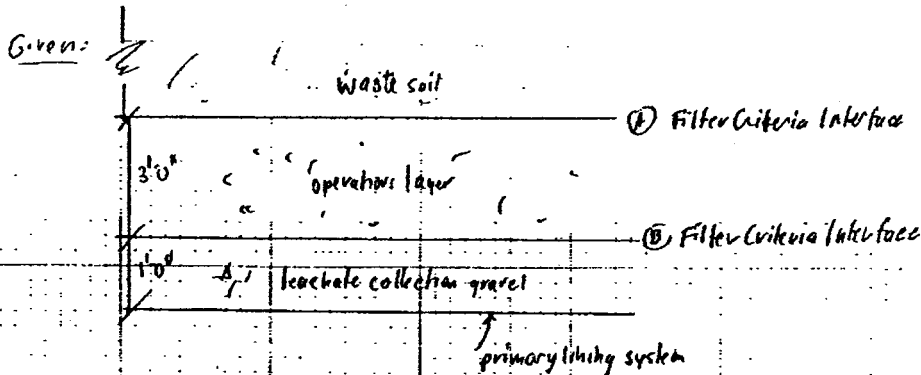 Given:
waste soil
Ⓐ Filter Criteria Interface
3'-0"
"operations layer"
Ⓑ Filter Criteria Interface
1'-0"
leachate collection gravel
primary lining system